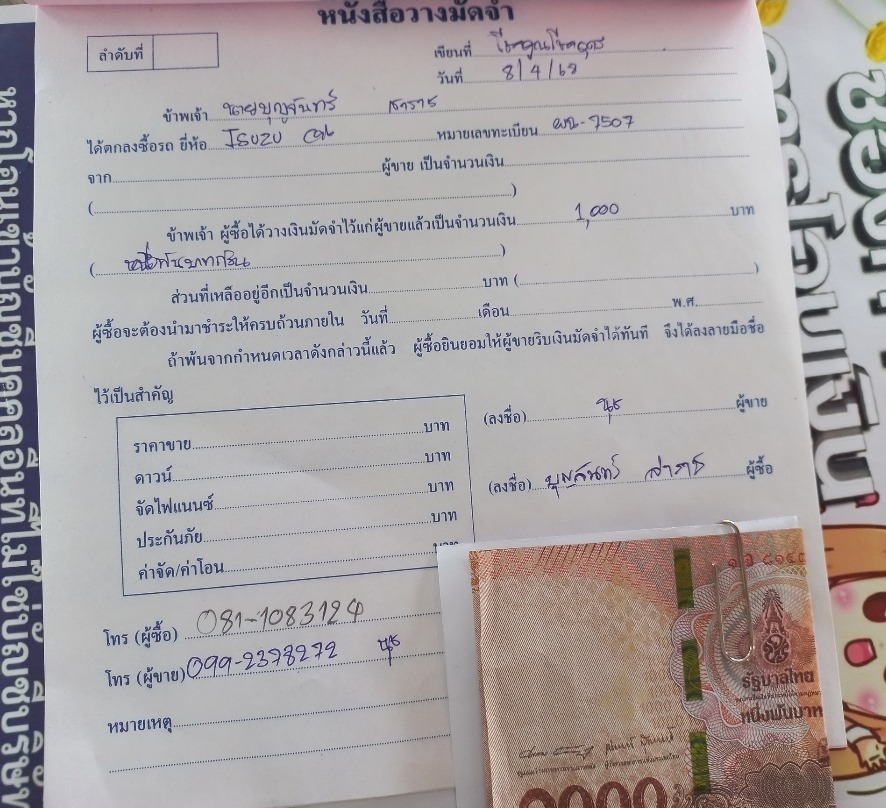 หนังสือวางมัดจำ
ลำดับที่
เขียนที่
วันที่ 8/4/68
ข้าพเจ้า นายบุญจันทร์
ได้ตกลงซื้อรถ ยี่ห้อ ISUZU หมายเลขทะเบียน 7507
จาก ผู้ขาย เป็นจำนวนเงิน
( )
ข้าพเจ้า ผู้ซื้อได้วางเงินมัดจำไว้แก่ผู้ขายแล้วเป็นจำนวนเงิน 1,000 บาท
( หนึ่งพันบาทถ้วน )
ส่วนที่เหลืออยู่อีกเป็นจำนวนเงิน บาท ( )
ผู้ซื้อจะต้องนำมาชำระให้ครบถ้วนภายใน วันที่ เดือน พ.ศ.
ถ้าพ้นจากกำหนดเวลาดังกล่าวนี้แล้ว ผู้ซื้อยินยอมให้ผู้ขายริบเงินมัดจำได้ทันที จึงได้ลงลายมือชื่อ
ไว้เป็นสำคัญ
(ลงชื่อ) นุช ผู้ขาย
(ลงชื่อ) ผู้ซื้อ
ราคาขาย บาท
ดาวน์ บาท
จัดไฟแนนซ์ บาท
ประกันภัย บาท
ค่าจัด/ค่าโอน บาท
โทร (ผู้ซื้อ) 081-1083124
โทร (ผู้ขาย) 099-2378272 นุช
หมายเหตุ
รัฐบาลไทย
หนึ่งพันบาท
1000